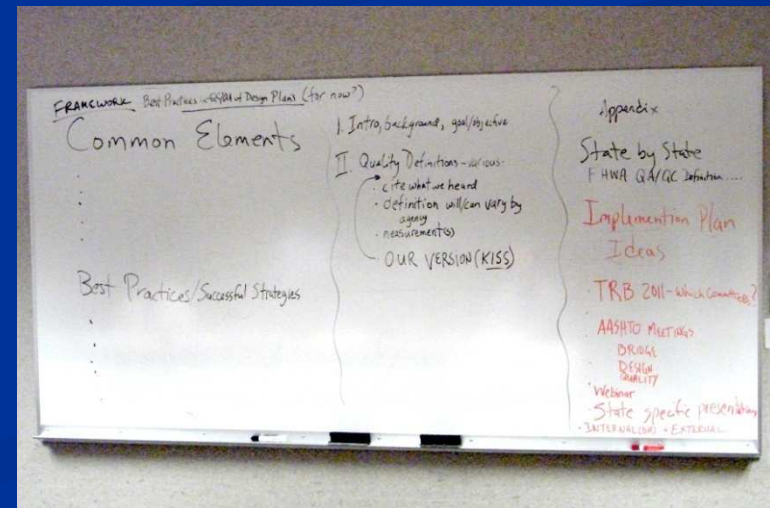 FRAMEWORK Best Practices in QC/QA of Design Plans (for now?)
Common Elements
Best Practices/Successful Strategies
I. Intro, background, goal/objective
II. Quality Definitions - various -
· cite what we heard
· definition will/can vary by
agency
· measurement(s)
OUR VERSION (KISS)
Appendix
State by State
FHWA QA/QC Definition....
Implemention Plan
Ideas
· TRB 2011 - which Committees?
· AASHTO MEETINGS
BRIDGE
DESIGN
QUALITY
· Webinar
· State specific presentations
· INTERNAL + EXTERNAL